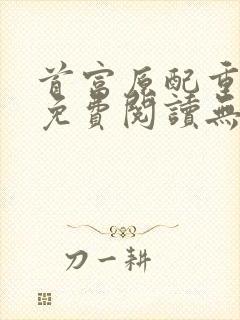 首富原配重
免費閱讀無
刀一耕